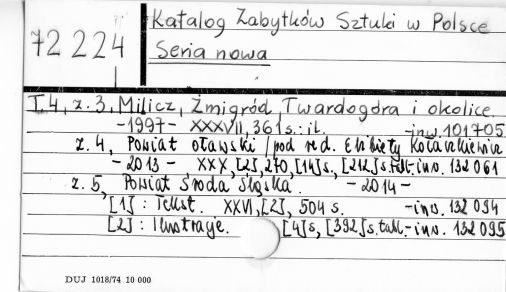 72 224
Katalog Zabytków Sztuki w Polsce
Seria nowa
T.4, z.3, Milicz, Żmigród, Twardogóra i okolice.
-1997- XXXVII, 361 s. : il. -inw. 101705
z.4, Powiat oławski / pod red. Elżbiety Kołaczkiewicz
- 2013 - XXX, [2], 270, [14] s., [212] s. tabl. - inw. 132 061
z.5, Powiat Środa Śląska. - 2014 -
[1] : Tekst. XXVI, [2], 504 s. -inw. 132 094
[2] : Ilustracje. [4] s, [392] s. tabl. - inw. 132 095
DUJ 1018/74 10 000